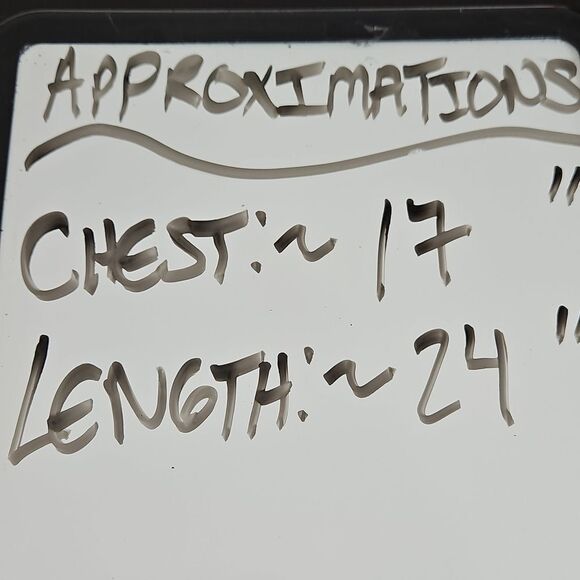 APPROXIMATIONS
CHEST: ~ 17 "
LENGTH: ~ 24 "